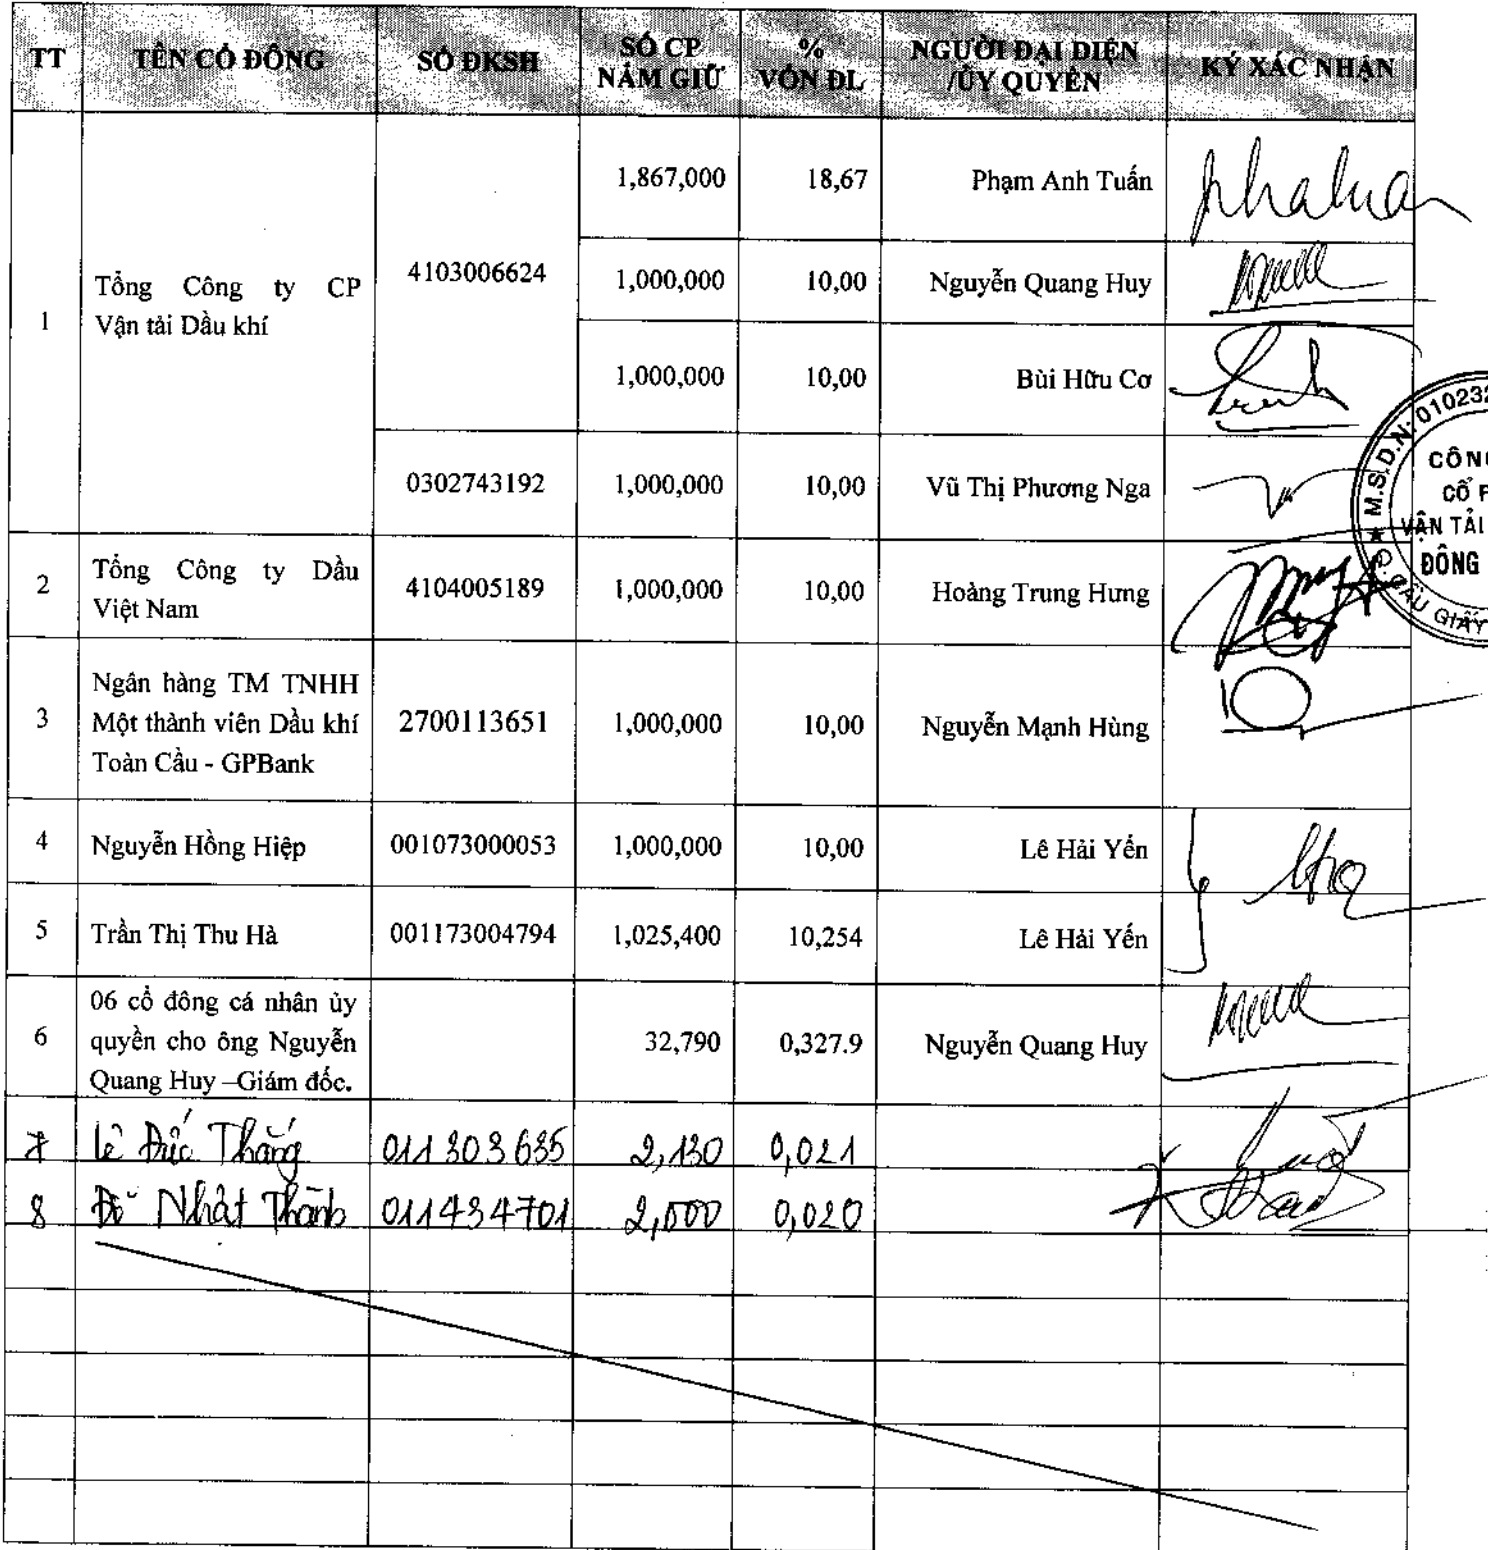 TT TÊN CỔ ĐÔNG SỐ ĐKSH SỐ CP NẮM GIỮ % VỐN ĐL NGƯỜI ĐẠI DIỆN /ỦY QUYỀN KÝ XÁC NHẬN
1 Tổng Công ty CP
Vận tải Dầu khí
4103006624
1,867,000 18,67 Phạm Anh Tuấn
1,000,000 10,00 Nguyễn Quang Huy
1,000,000 10,00 Bùi Hữu Cơ
0302743192 1,000,000 10,00 Vũ Thị Phương Nga
2 Tổng Công ty Dầu
Việt Nam
4104005189 1,000,000 10,00 Hoàng Trung Hưng
3 Ngân hàng TM TNHH
Một thành viên Dầu khí
Toàn Cầu - GPBank
2700113651 1,000,000 10,00 Nguyễn Mạnh Hùng
4 Nguyễn Hồng Hiệp 001073000053 1,000,000 10,00 Lê Hải Yến
5 Trần Thị Thu Hà 001173004794 1,025,400 10,254 Lê Hải Yến
6 06 cổ đông cá nhân ủy
quyền cho ông Nguyễn
Quang Huy –Giám đốc.
32,790 0,327.9 Nguyễn Quang Huy
7 Lê Đức Thắng 011303635 2,130 0,021
8 Đỗ Nhật Thành 011434701 2,000 0,020
★ M.S.D.N: 01023
CÔNG
CỔ P
VẬN TẢI
ĐÔNG
Q. CẦU GIẤY